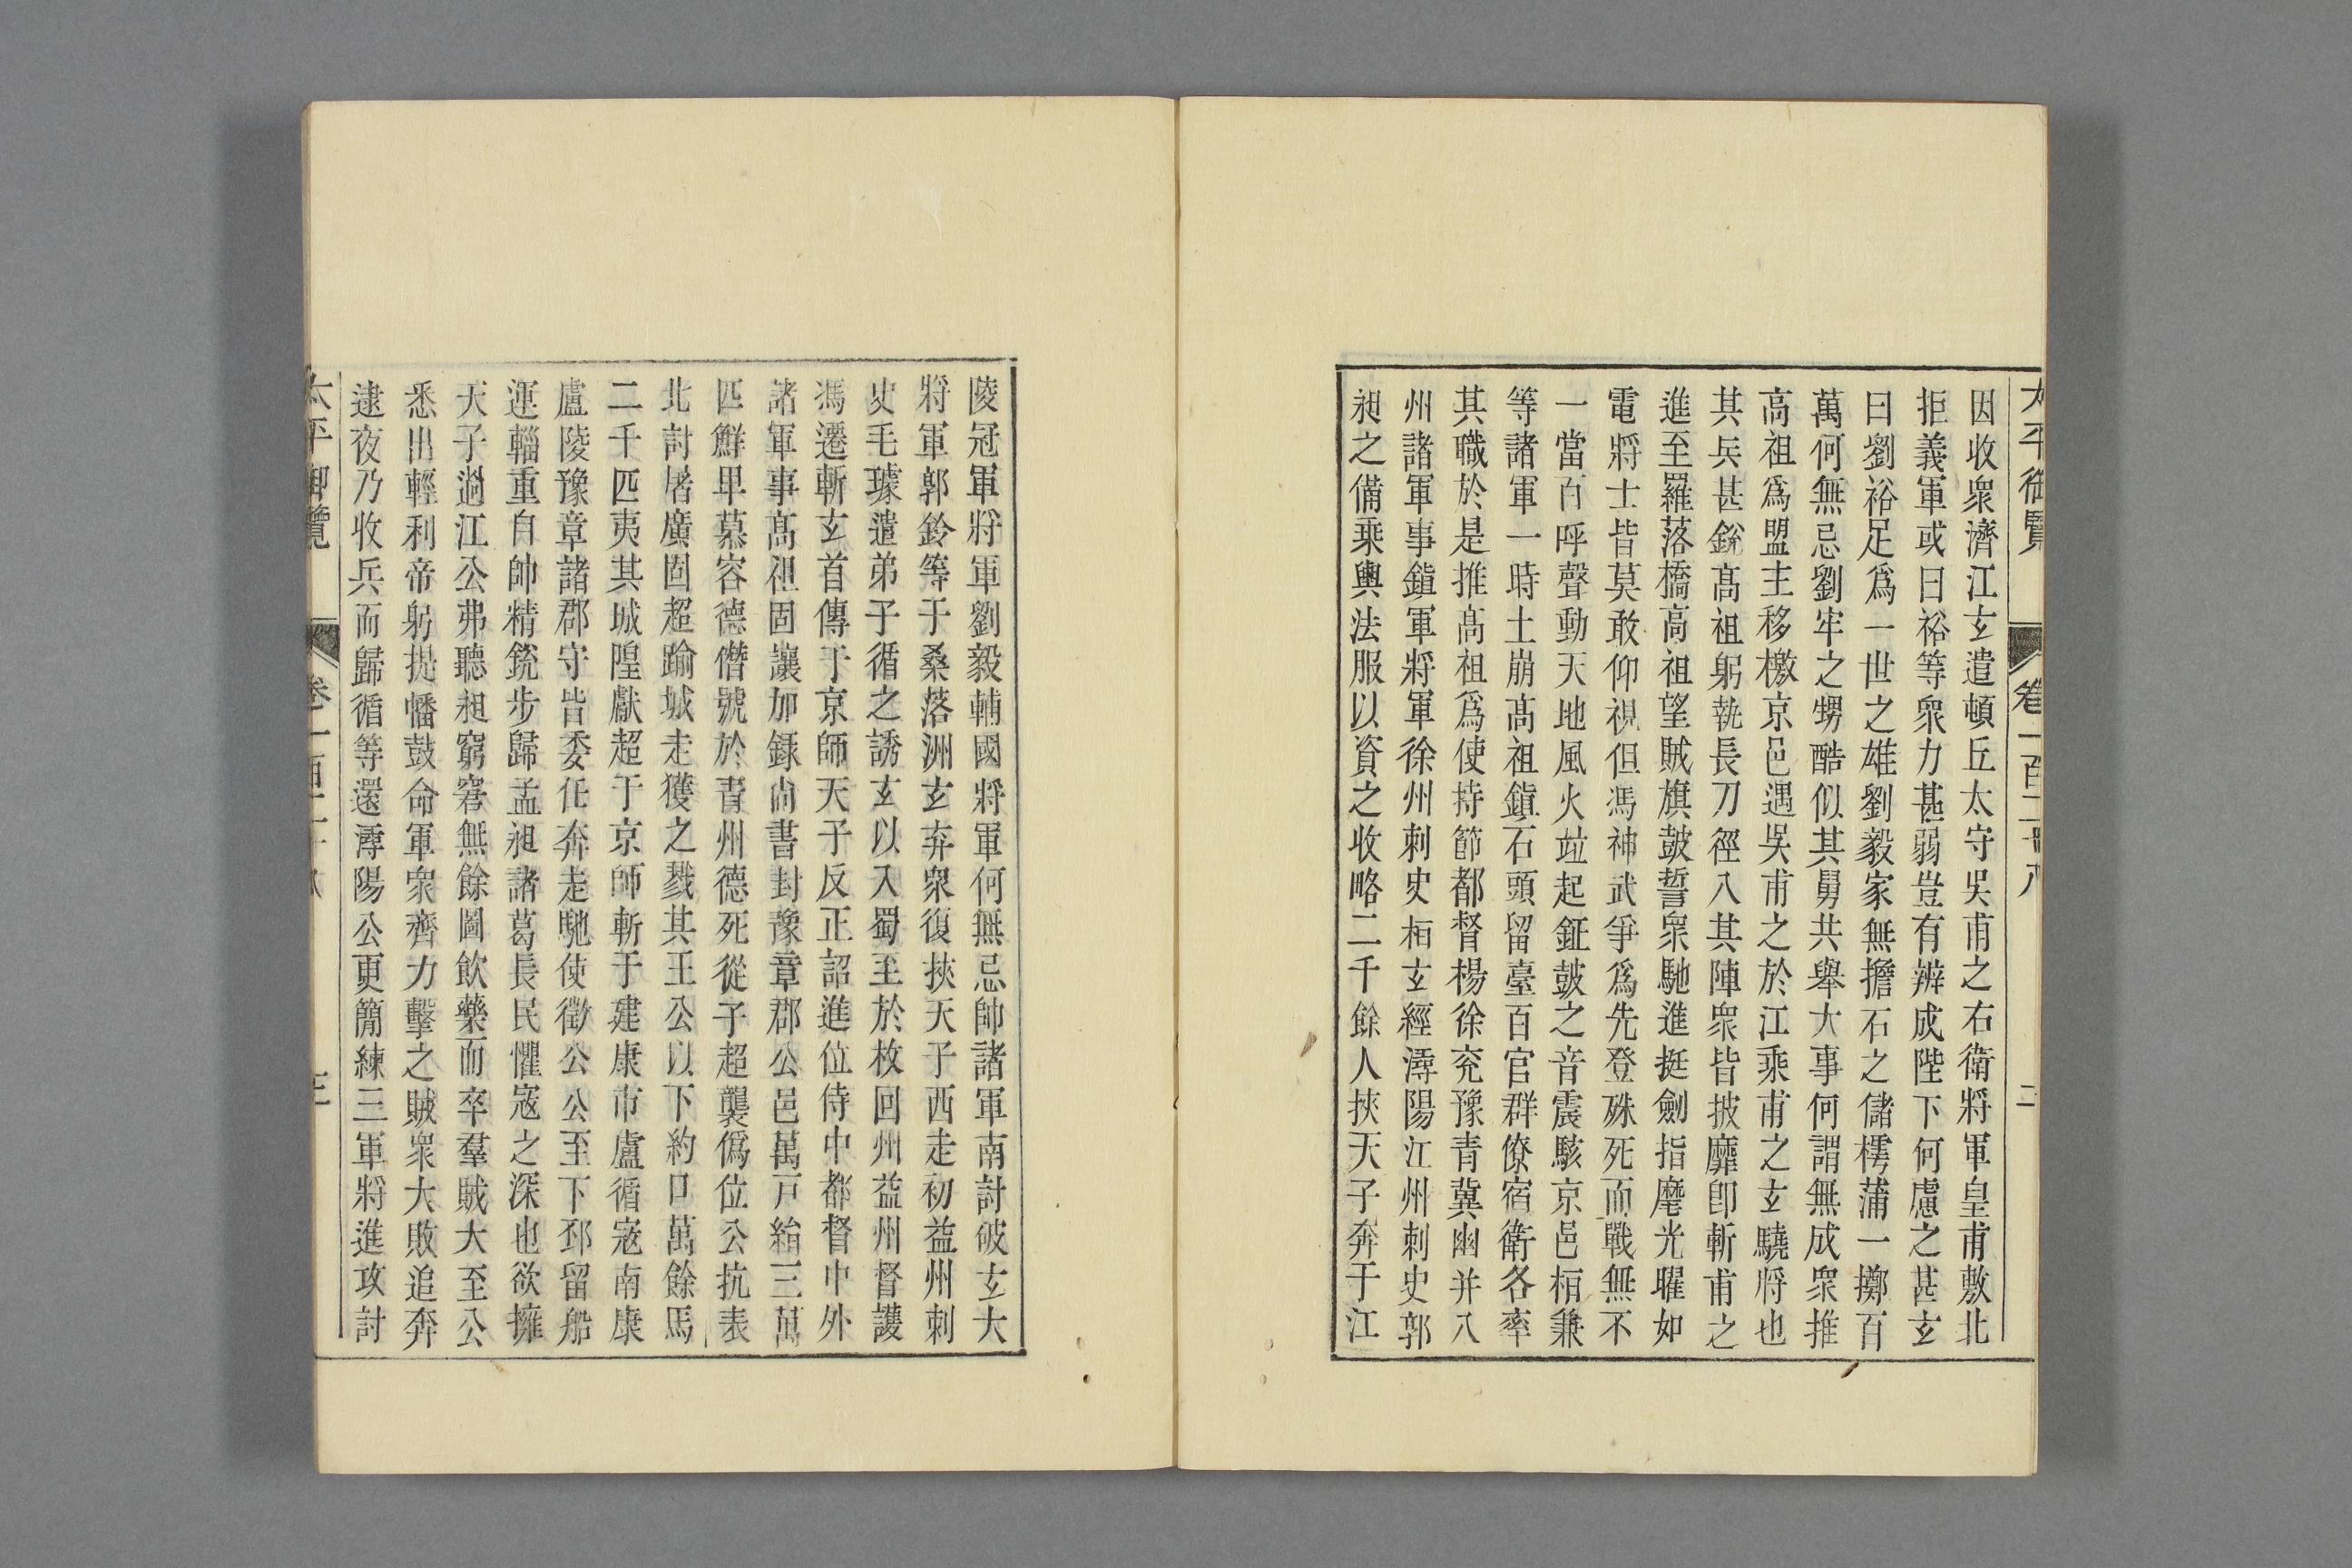 太平御覽 卷一百二十八 二
因收衆濟江玄遣頓丘太守吳甫之右衛將軍皇甫敷北
拒義軍或曰裕等衆力甚弱豈有辨成陛下何慮之甚玄
曰劉裕足爲一世之雄劉毅家無擔石之儲樗蒲一擲百
萬何無忌劉牢之甥酷似其舅共舉大事何謂無成衆推
高祖爲盟主移檄京邑遇吳甫之於江乘甫之玄驍將也
其兵甚銳髙祖躬執長刀徑入其陣衆皆披靡卽斬甫之
進至羅落橋高祖望賊旗鼓誓衆馳進挺劍指麾光曜如
電將士皆莫敢仰視但馮神武爭爲先登殊死而戰無不
一當百呼聲動天地風火竝起鉦鼓之音震駭京邑桓兼
等諸軍一時土崩髙祖鎮石頭留臺百官群僚宿衛各率
其職於是推髙祖爲使持節都督楊徐兖豫青冀幽并八
州諸軍事鎮軍將軍徐州刺史桓玄經潯陽江州刺史郭
昶之備乘輿法服以資之收略二千餘人挾天子奔于江
陵冠軍將軍劉毅輔國將軍何無忌帥諸軍南討破玄大
將軍郭銓等于桑落洲玄弃衆復挾天子西走初益州刺
史毛璩遣弟子循之誘玄以入蜀至於枚回州益州督護
馮遷斬玄首傳于京師天子反正詔進位侍中都督中外
諸軍事髙祖固讓加録尚書封豫章郡公邑萬戸絹三萬
匹鮮卑慕容德僭號於青州德死從子超襲僞位公抗表
北討屠廣固超踰城走獲之戮其王公以下約口萬餘馬
二千匹夷其城隍獻超于京師斬于建康市盧循寇南康
廬陵豫章諸郡守皆委任奔走馳使徵公公至下邳留船
運輜重自帥精銳步歸孟昶諸葛長民懼寇之深也欲擁
天子過江公弗聽昶窮窘無餘圖飲藥而卒羣賊大至公
悉出輕利帝躬提幡鼓命軍衆齊力擊之賊衆大敗追奔
逮夜乃收兵而歸循等還潯陽公更簡練三軍將進攻討
太平御覽 卷一百二十八 三